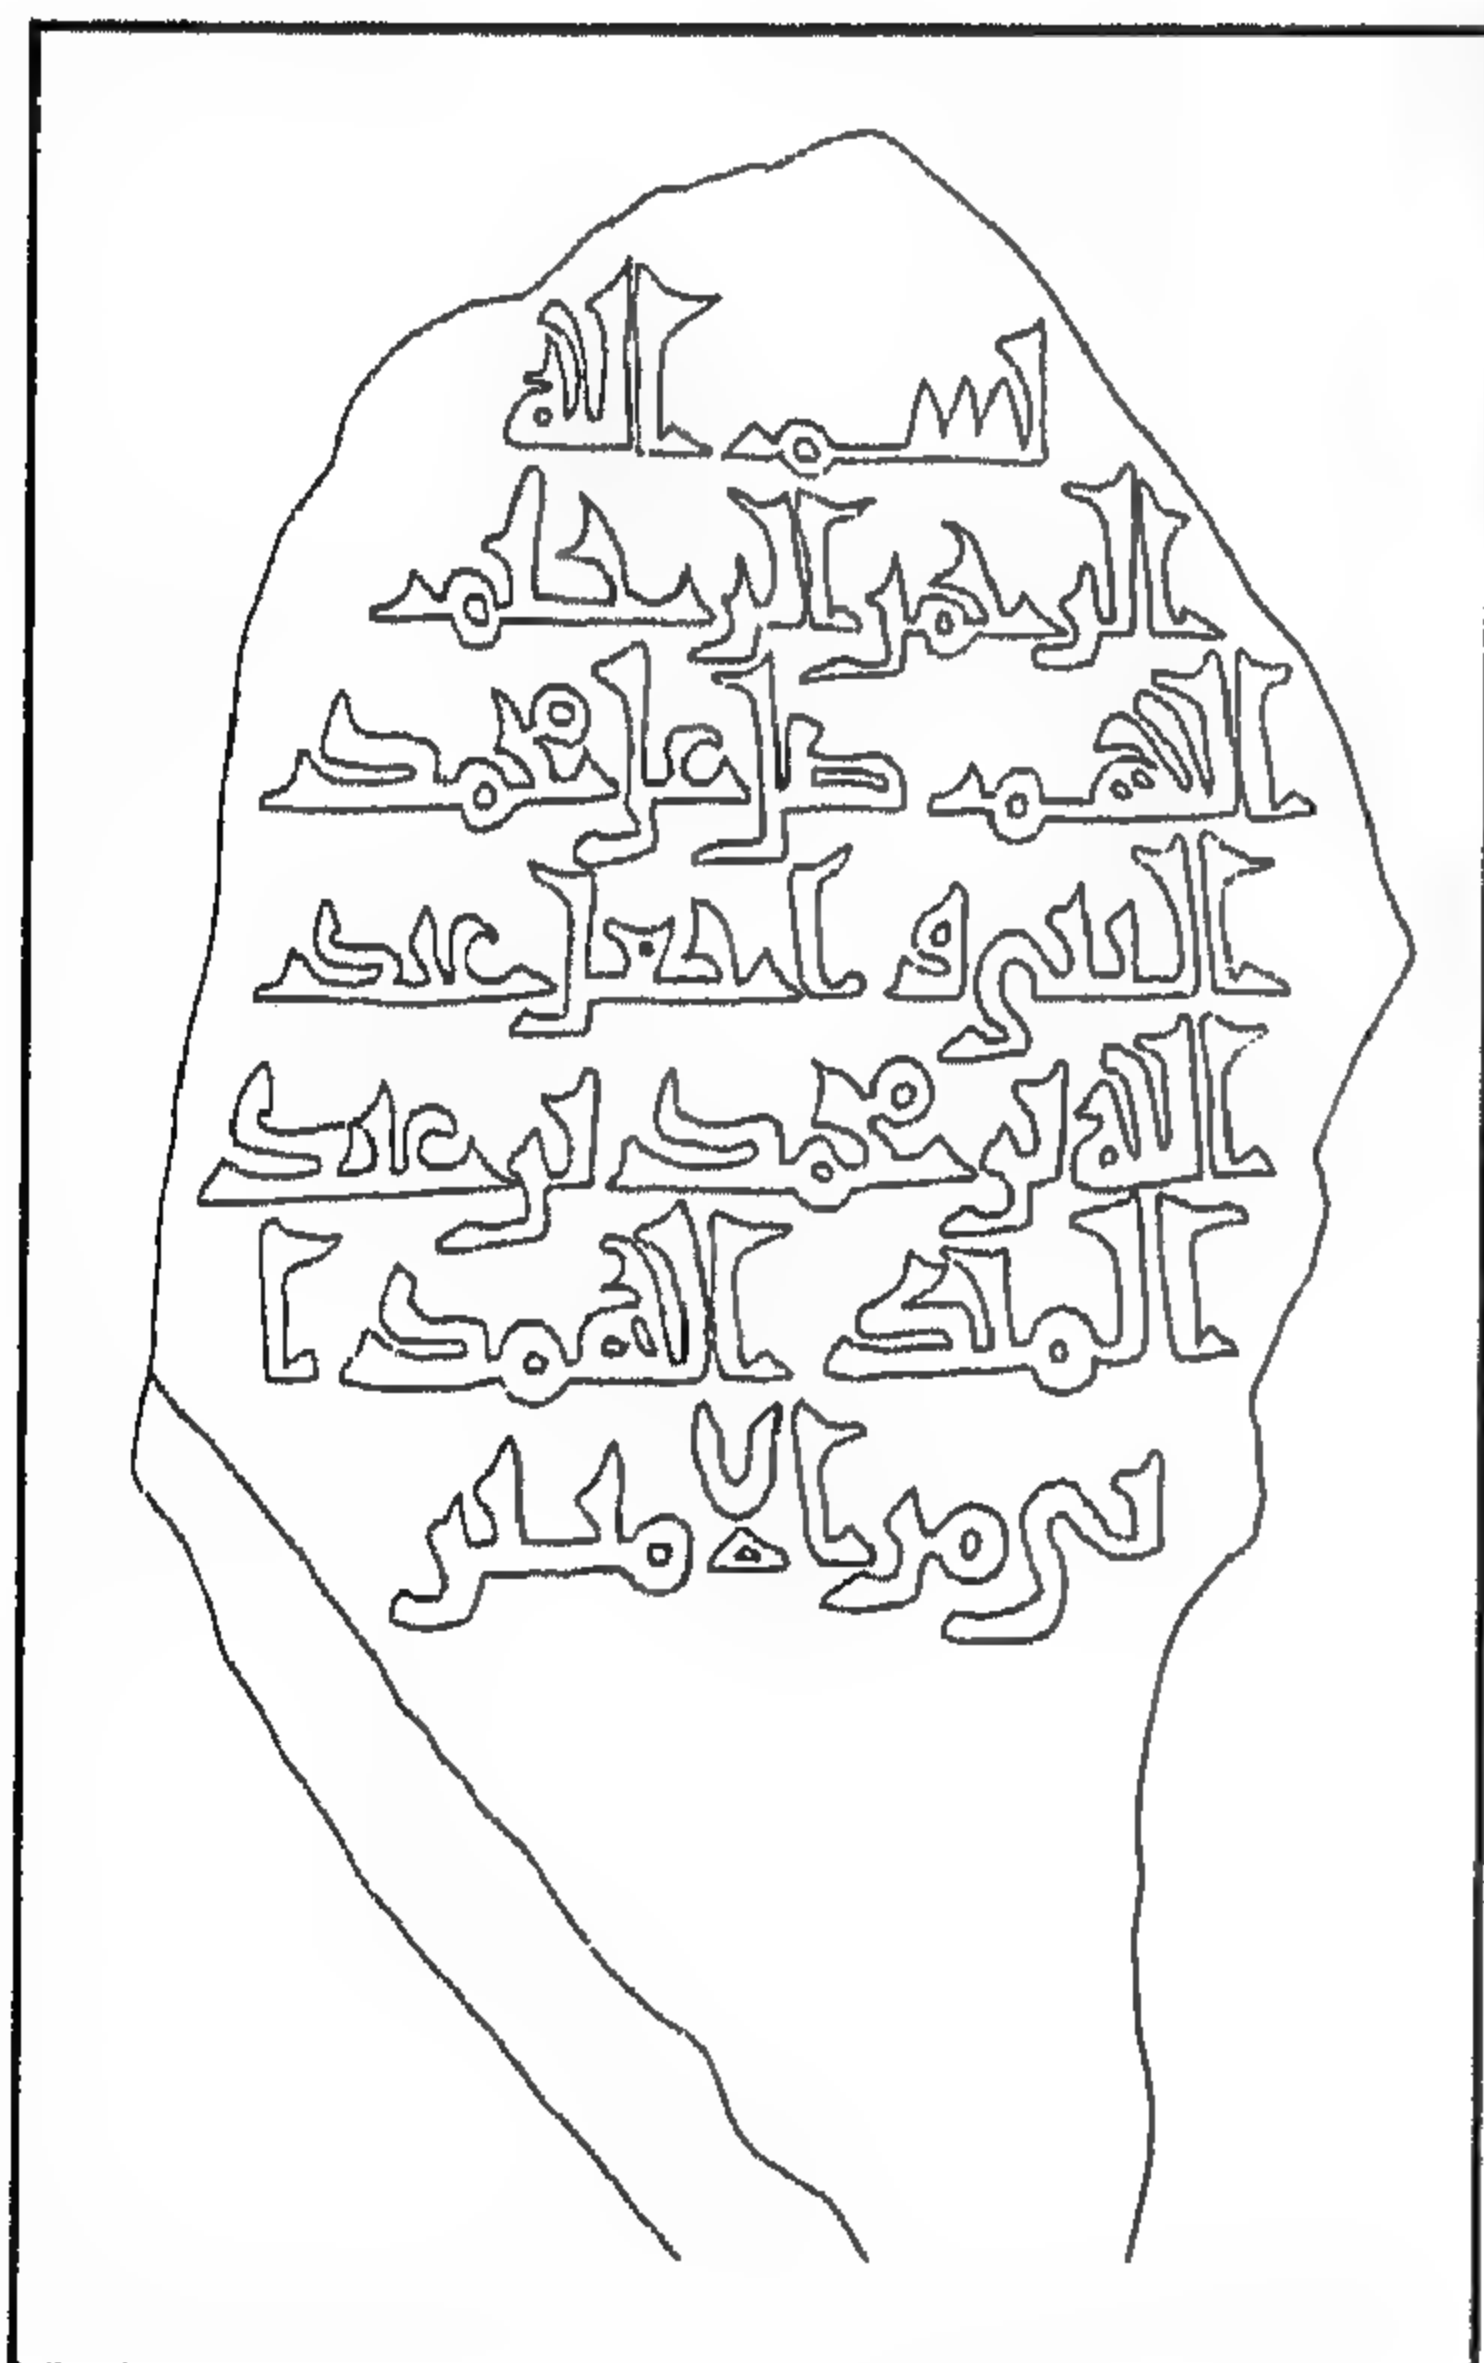 بسم الله
الرحمن الرحيم
اللهم صل على محمد
النبى و اجعل عبد
الله بن محمد بن عبد
الملك
من الامنين